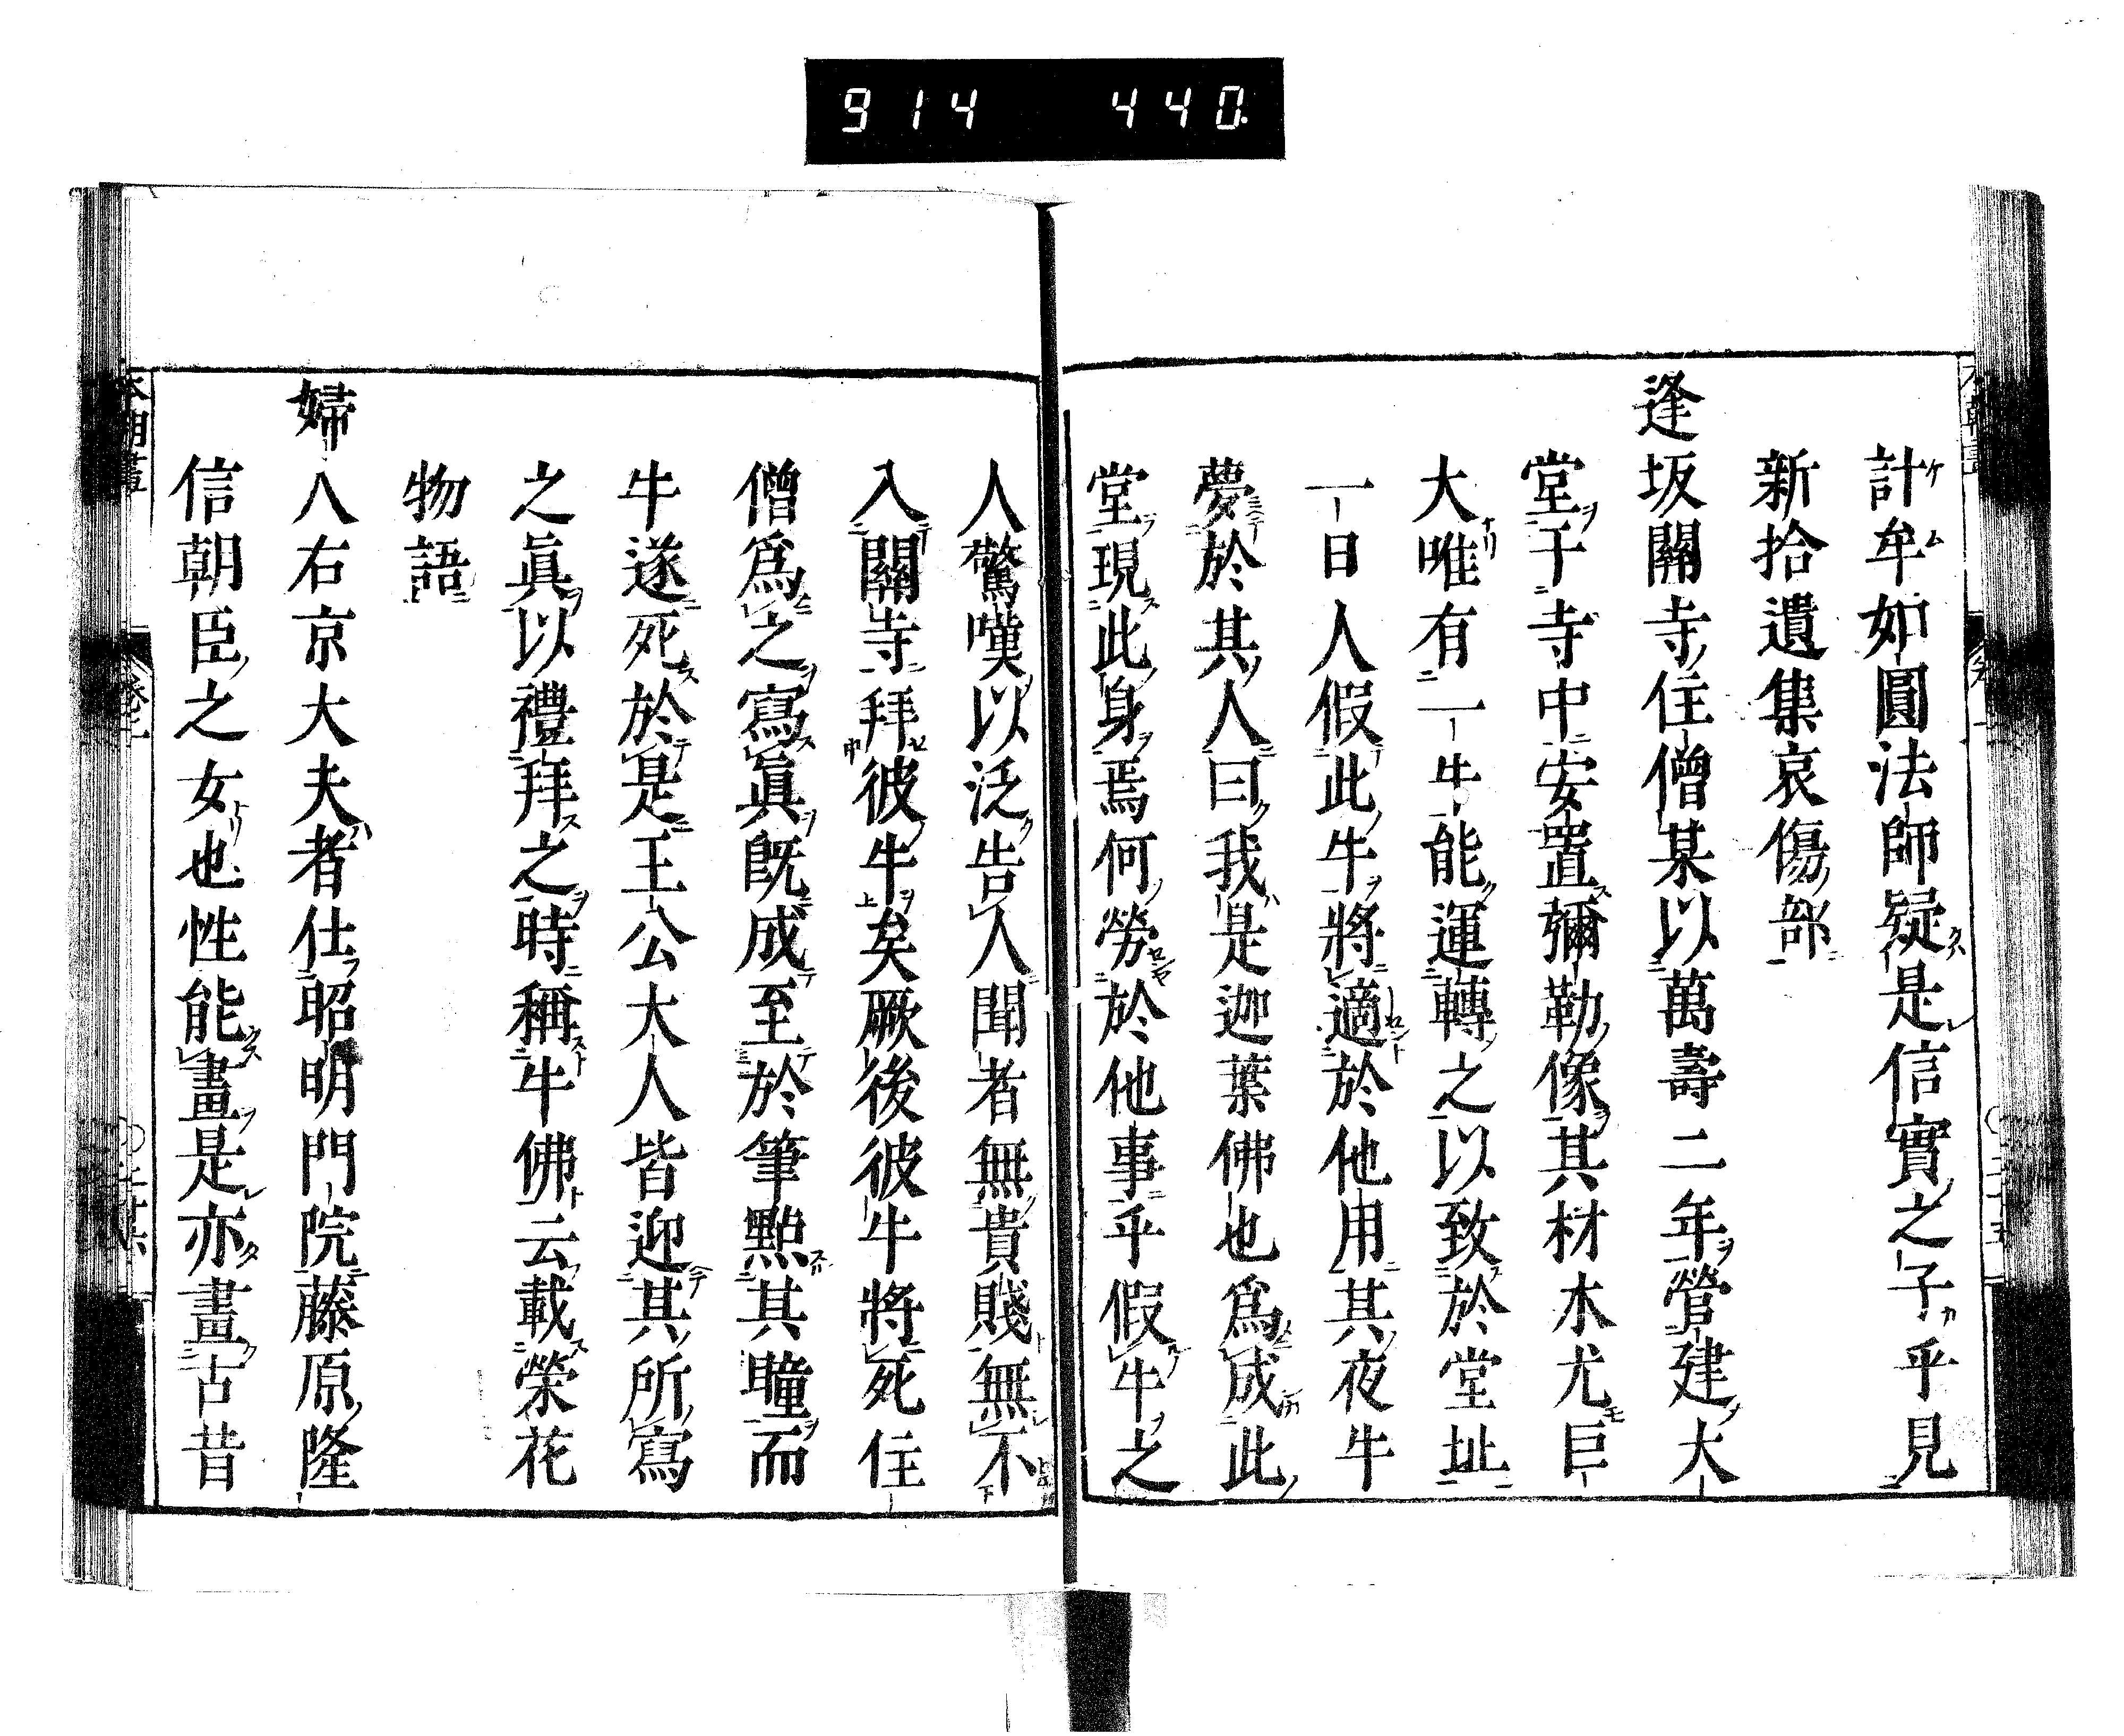 914 440
計牟如圓法師疑是信實之子乎見
新拾遺集哀傷部
逢坂關寺住僧某以萬壽二年營建大
堂于寺中安置彌勒像其材木尤巨
大唯有一牛能運轉之以致於堂址
一日人假此牛將適於他用其夜牛
夢於其人曰我是迦葉佛也爲成此
堂現此身焉何勞於他事乎假牛之
人驚嘆以泛告人聞者無貴賤無不
入關寺拜彼牛矣厥後彼牛將死住
僧爲之寫眞既成至於筆點其瞳而
牛遂死於是王公大人皆迎其所寫
之眞以禮拜之時稱牛佛云載榮花
物語
婦人右京大夫者仕昭明門院藤原隆
信朝臣之女也性能畫是亦畫古昔